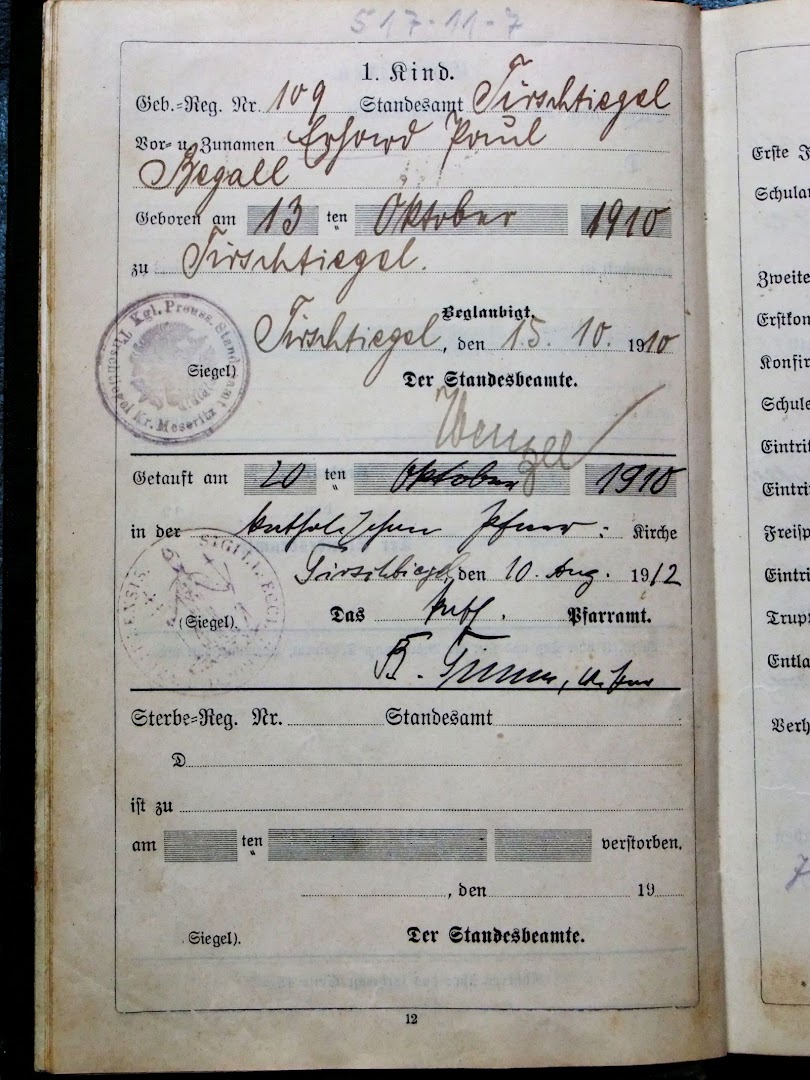 517-11-7
1. Kind.
Geb.=Reg. Nr. 109 Standesamt Tirschtiegel
Vor= u. Zunamen Erhard Paul
Begall
Geboren am 13 ten Oktober 1910
zu Tirschtiegel.
Beglaubigt.
Tirschtiegel, den 15. 10. 1910
Siegel)
Kgl. Preuss. Standesamt Tirschtiegel Kr. Meseritz
Der Standesbeamte.
Wenzel
Getauft am 20 ten Oktober 1910
in der katholischen Pfarr: Kirche
Tirschtiegel, den 10. Aug. 1912
(Siegel).
SIGILL. ECCL.
Das kath. Pfarramt.
B.
Sterbe=Reg. Nr. Standesamt
D
ist zu
am ten verstorben.
, den 19
Siegel).
Der Standesbeamte.
12
Erste
Zweite